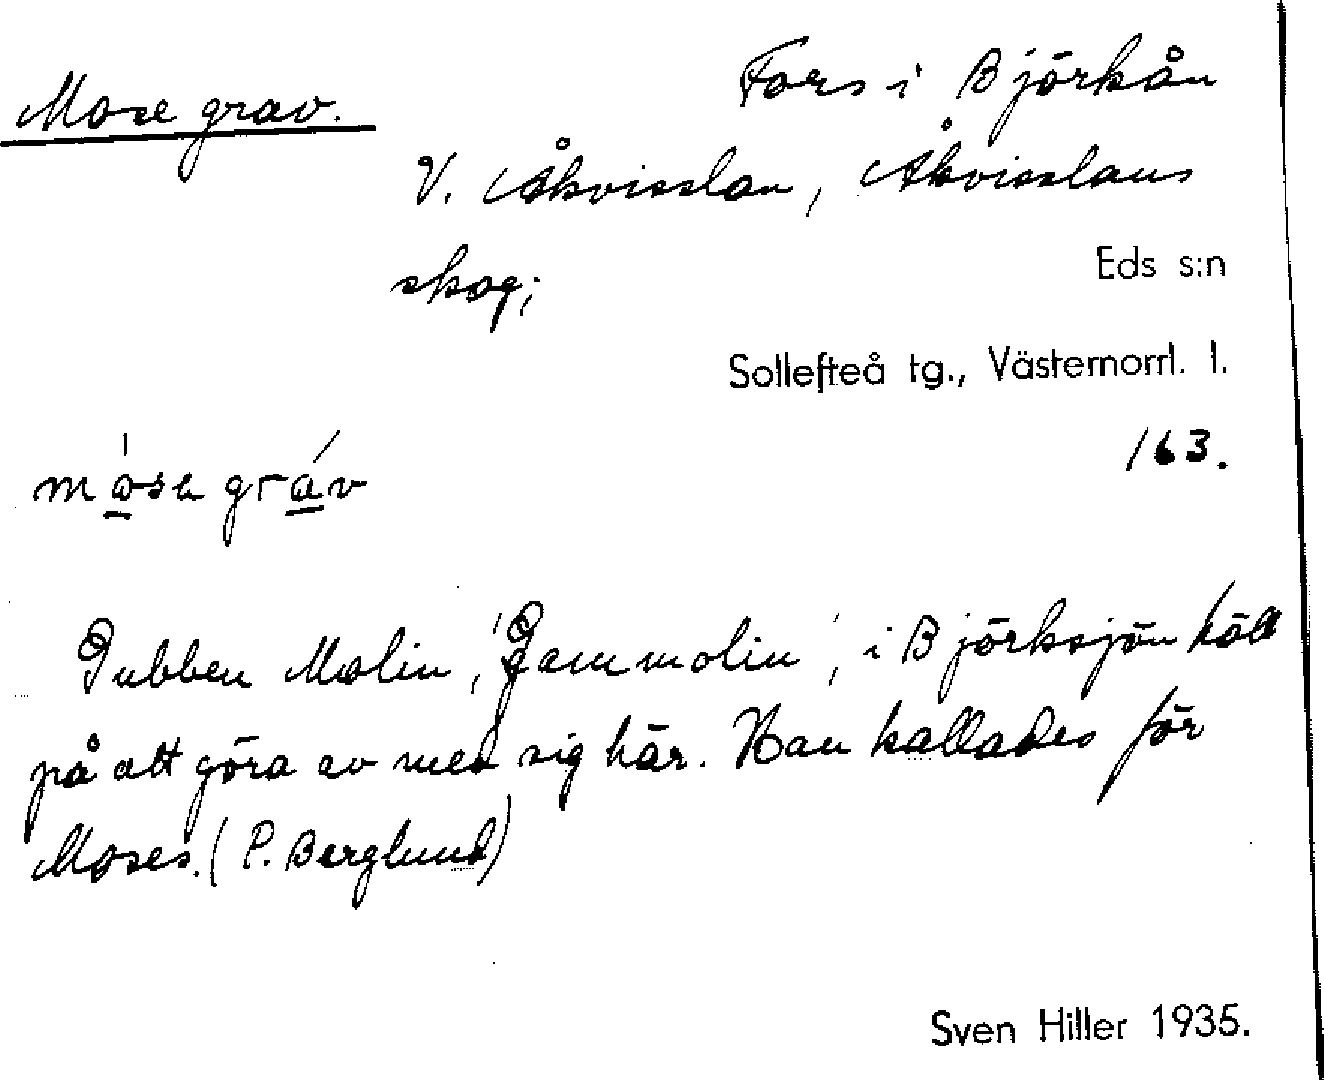 Mose grav.
Fors i Björkån
V. Åkvisslan, Åkvisslans
skog;
Eds s:n
Sollefteå tg., Västernorrl. l.
163.
mósa gráv
Gubben Molin, 'Gammolin', i Björksjön höll
på att göra av med sig här. Han kallades för
Moses. (P. Berglund)
Sven Hiller 1935.